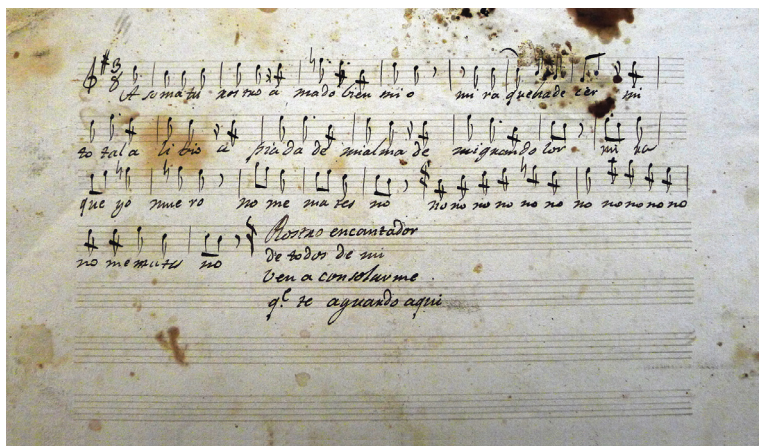 Asoma tu rostro amado bien mio mira que hade ser mi
total alibio apiada de mi alma de mi gran dolor mira
que yo muero no me mates no no no no no no no no no no no no no
no me mates no
Rostro encantador
de todos de mi
ven a consolarme
q.e te aguardo aqui